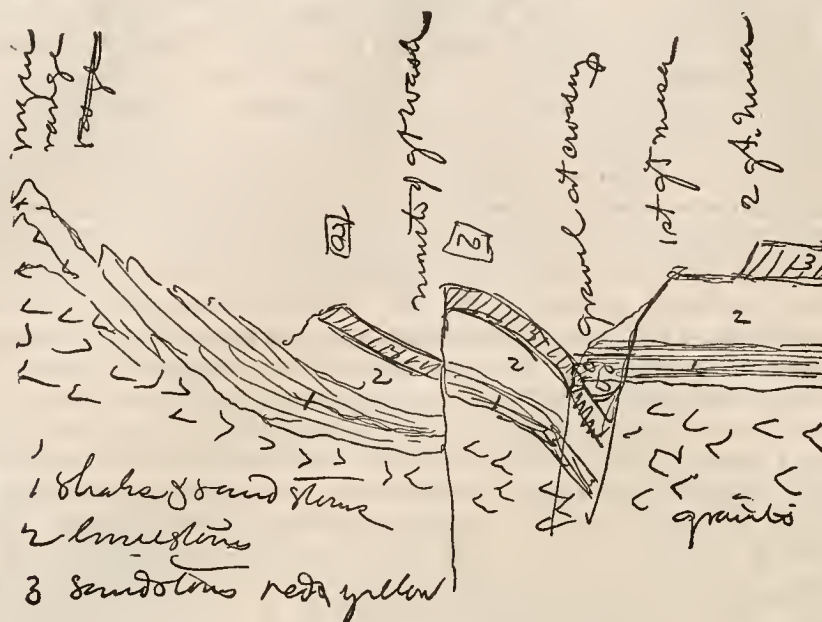 main
range
a
mouth of gt wash
b
gravel at crossing
1st gt mesa
2 gt. mesa
3
2
1
3
2
1
3
2
1
granite
1 shales & sandstones
2 limestones
3 sandstones red & yellow